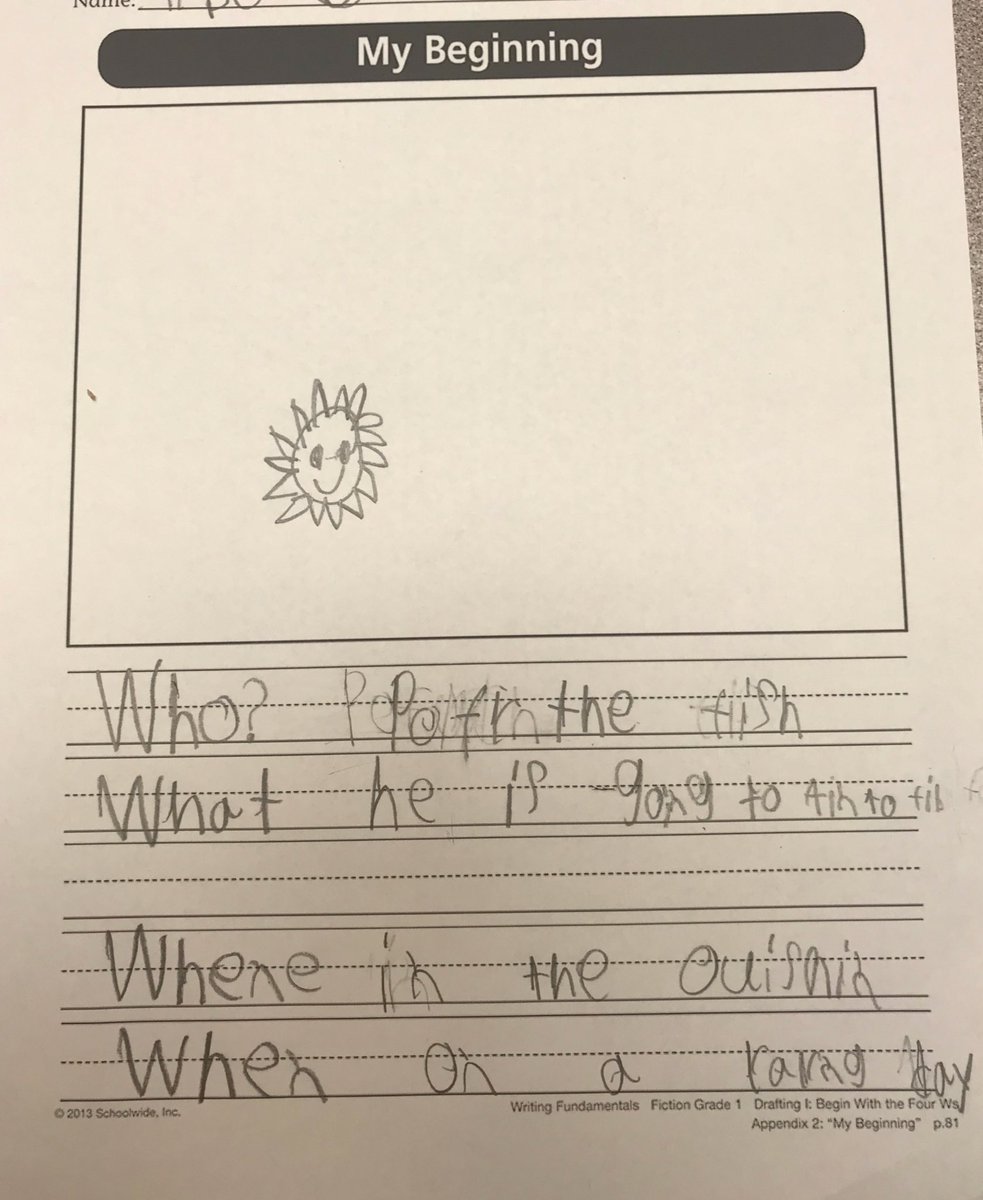 Name:
My Beginning
Who? Pofn the fish
What he is gong to to
Where in the ouisnin
When on a day
© 2013 Schoolwide, Inc.
Writing Fundamentals Fiction Grade 1 Drafting I: Begin With the Four Ws
Appendix 2: "My Beginning" p.81